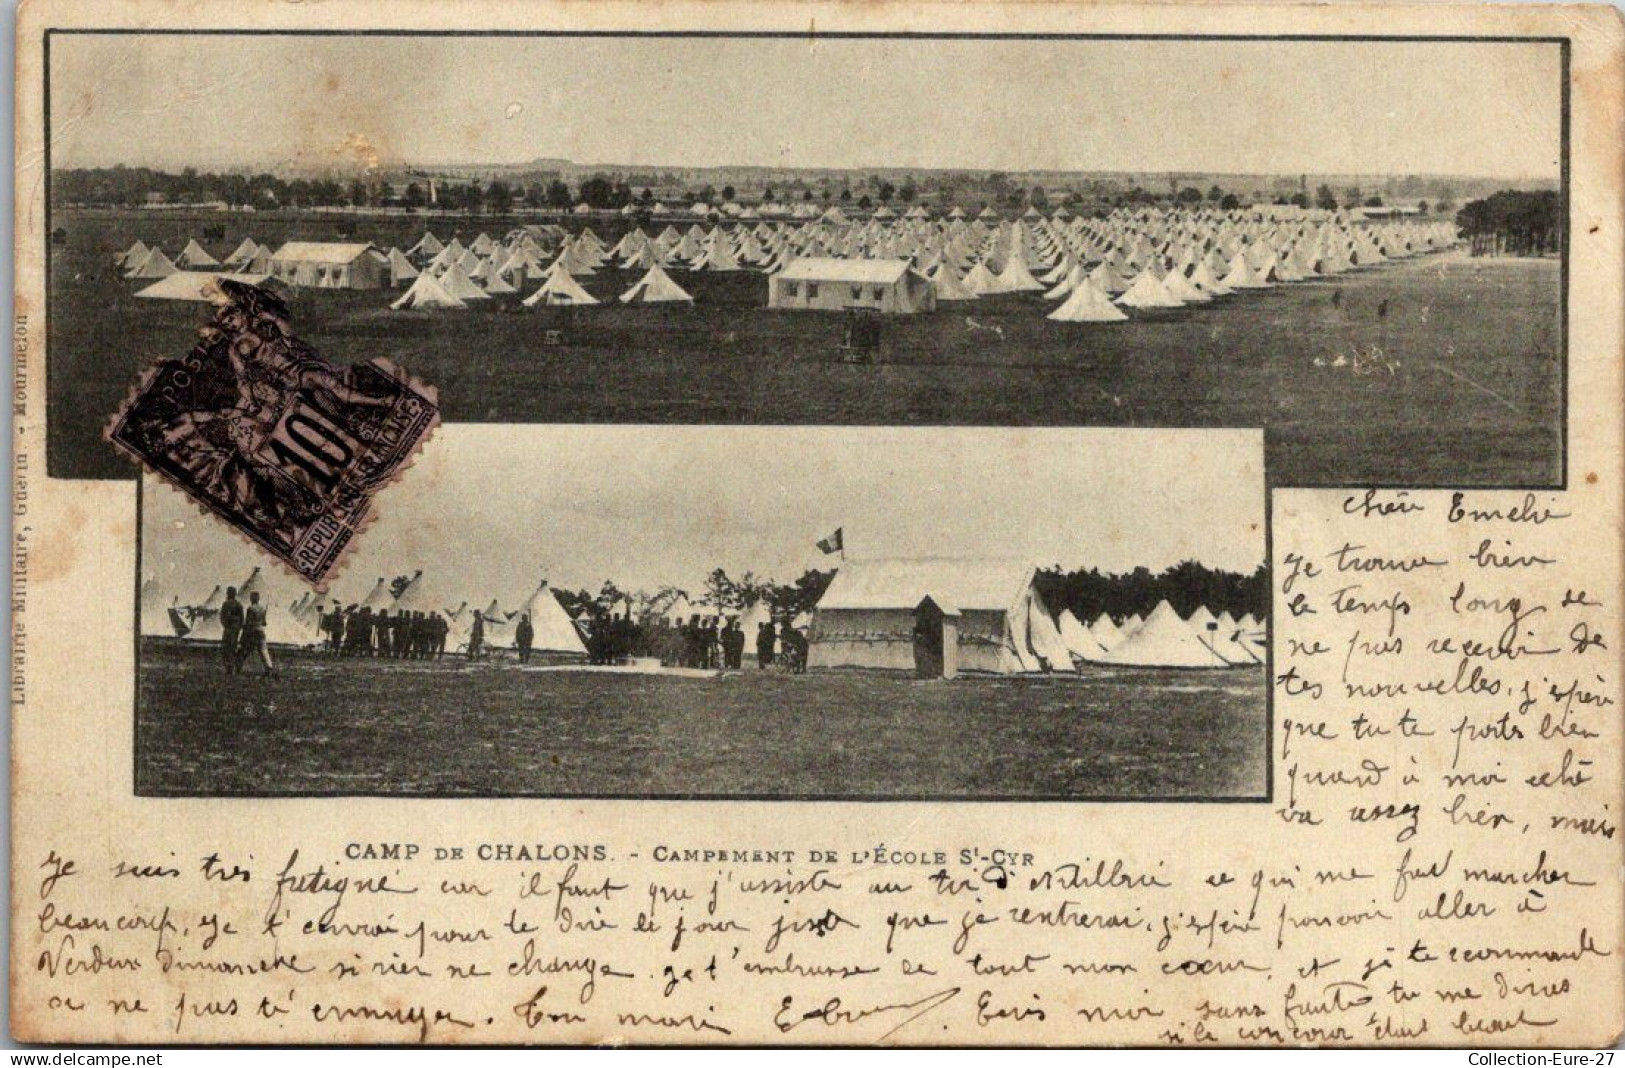 Librairie Militaire, Guérin - Mourmelon
POSTES
10
REPUBLIQUE FRANÇAISE
chère Emelie
Je trouve bien
le temps long de
ne pas recevoir de
tes nouvelles, j'espère
que tu te porte bien
quand à moi cela
va assez bien, mais
CAMP DE CHALONS. - CAMPEMENT DE L'ÉCOLE St-CYR
Je suis très fatigué car il faut que j'assiste au tir d'Artillerie ce qui me fait marcher
beaucoup, je t'enverrai pour te dire le jour juste que je rentrerai, j'espère pouvoir aller à
Verdun dimanche si rien ne change. je t'embrasse de tout mon coeur, et je te recommande
de ne pas t'ennuyer. Ton mari Ecris moi sans faute tu me diras
si le concour était beau
Collection-Eure-27